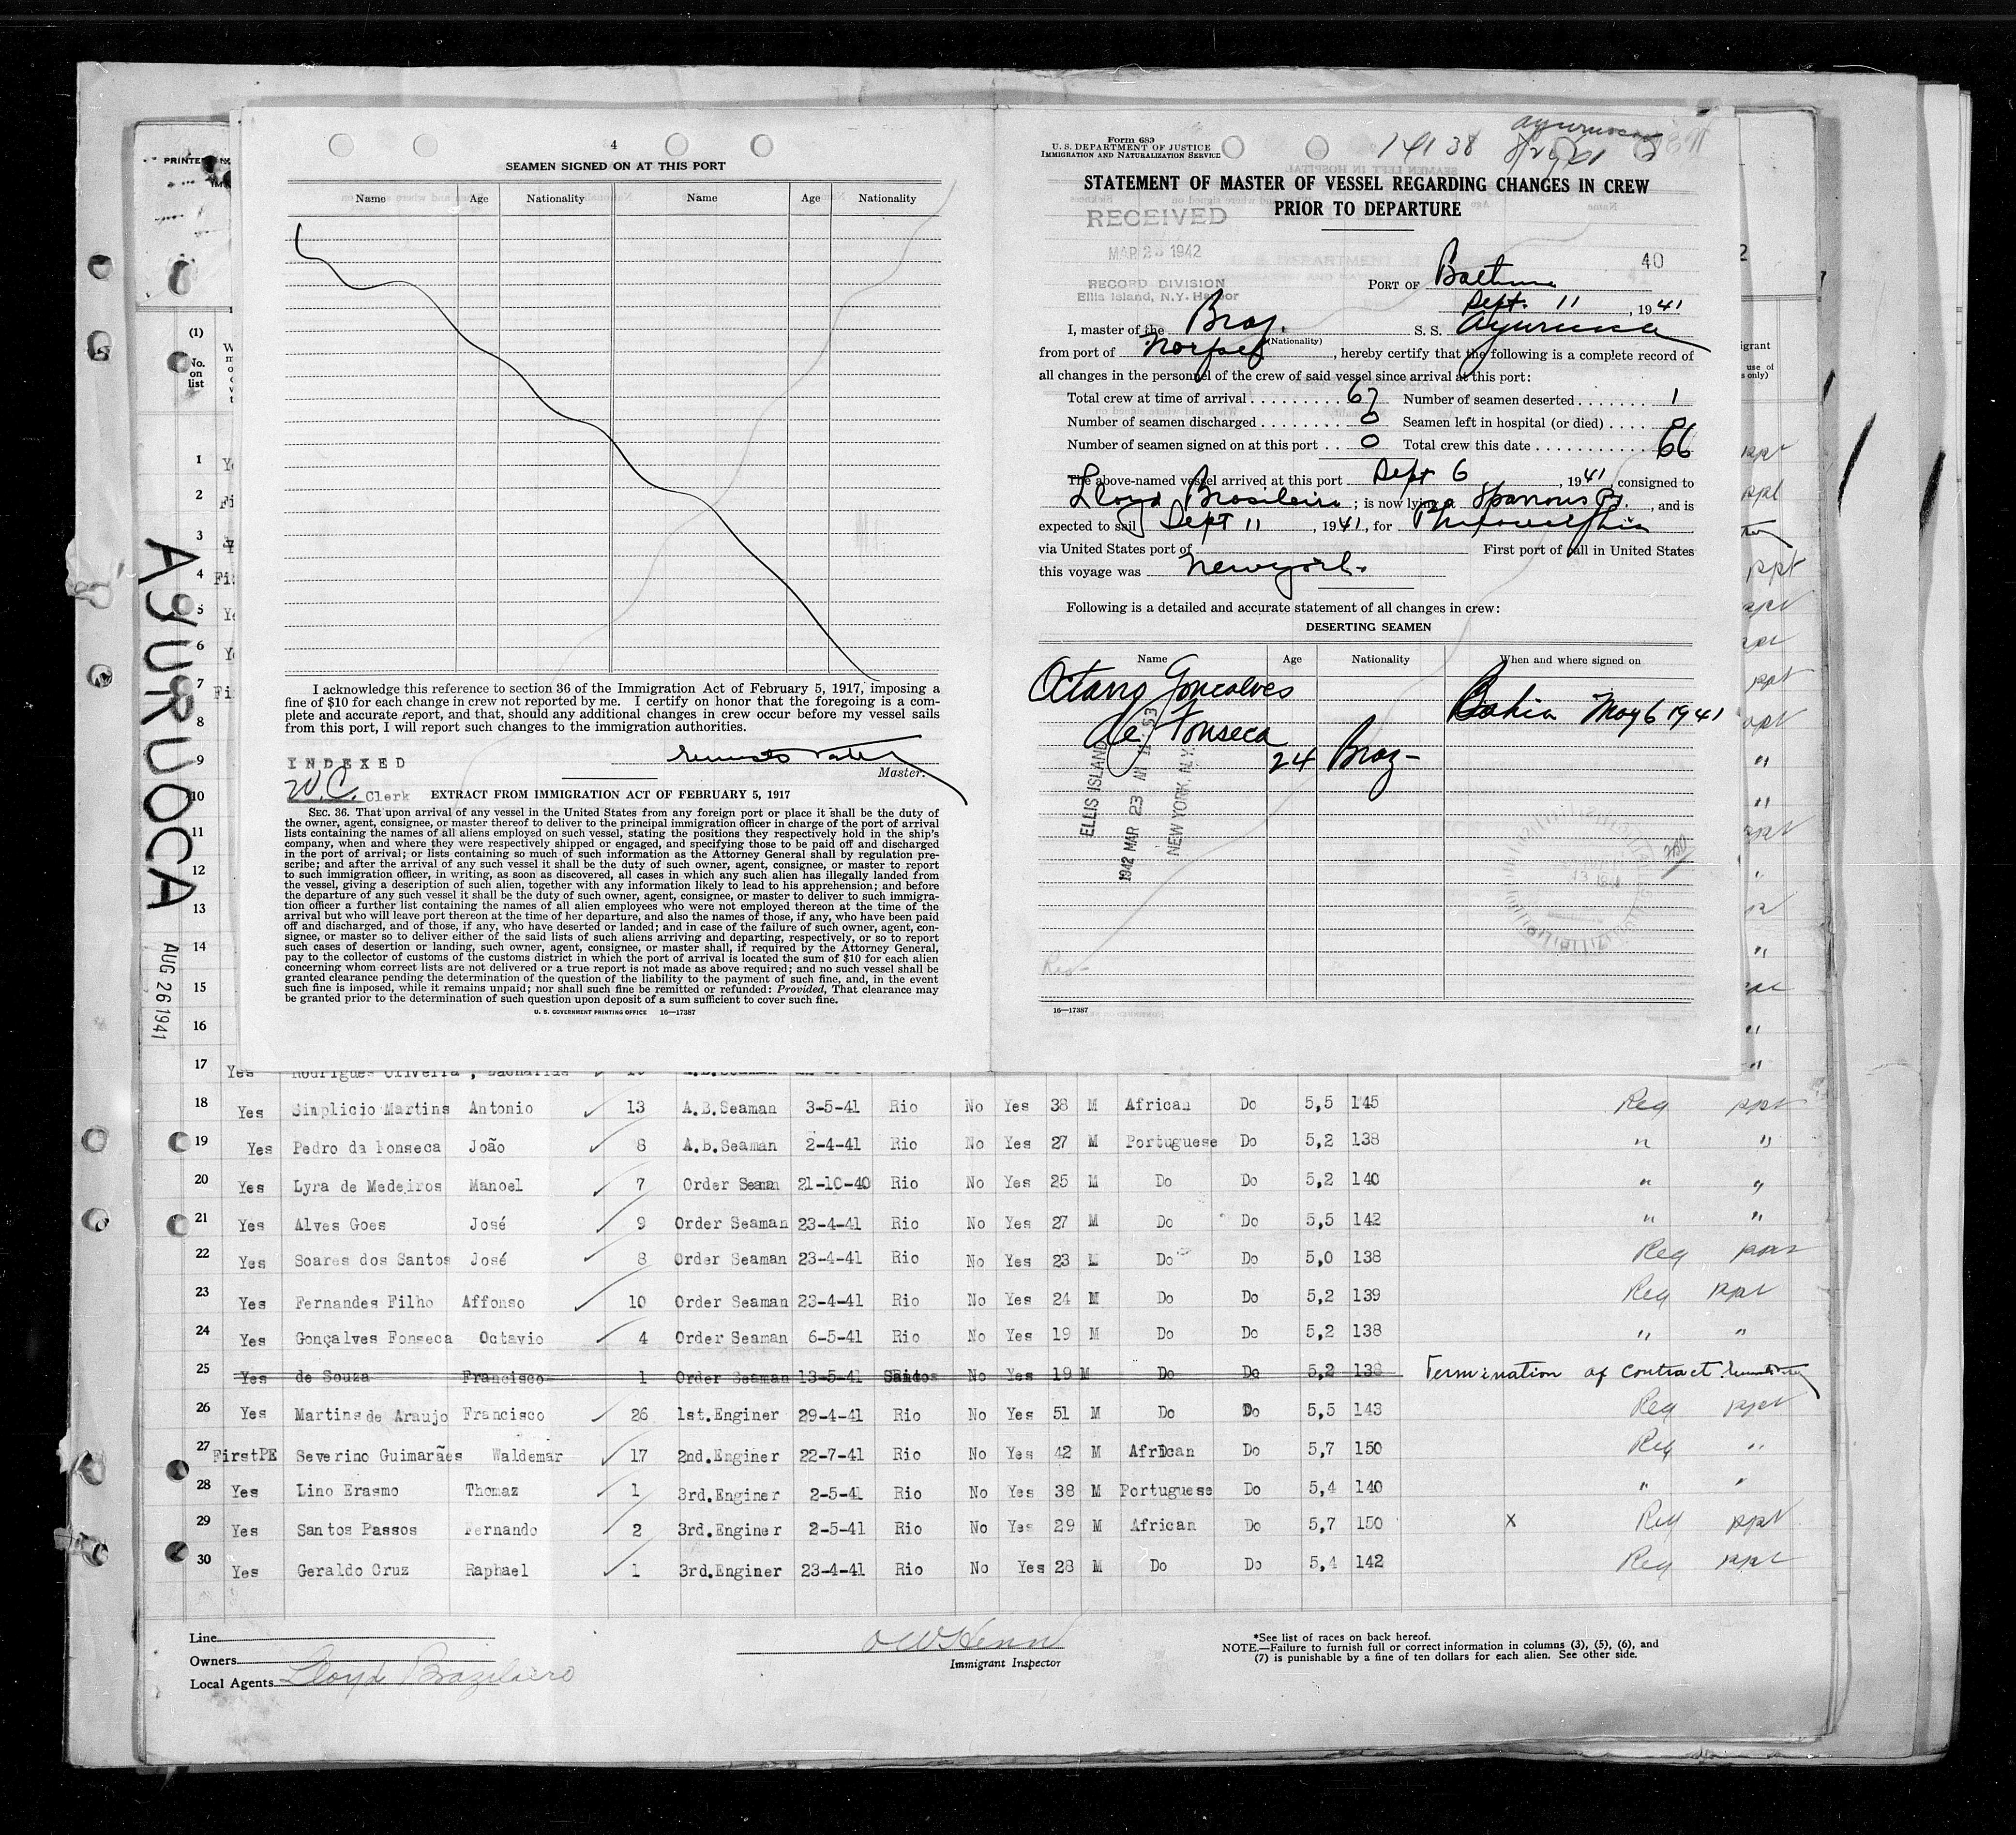 AYURUOCA
AUG 26 1941
4
SEAMEN SIGNED ON AT THIS PORT
Name Age Nationality Name Age Nationality
I acknowledge this reference to section 36 of the Immigration Act of February 5, 1917, imposing a
fine of $10 for each change in crew not reported by me. I certify on honor that the foregoing is a com-
plete and accurate report, and that, should any additional changes in crew occur before my vessel sails
from this port, I will report such changes to the immigration authorities.
Master.
INDEXED
W.C. Clerk
EXTRACT FROM IMMIGRATION ACT OF FEBRUARY 5, 1917
SEC. 36. That upon arrival of any vessel in the United States from any foreign port or place it shall be the duty of
the owner, agent, consignee, or master thereof to deliver to the principal immigration officer in charge of the port of arrival
lists containing the names of all aliens employed on such vessel, stating the positions they respectively hold in the ship's
company, when and where they were respectively shipped or engaged, and specifying those to be paid off and discharged
in the port of arrival; or lists containing so much of such information as the Attorney General shall by regulation pre-
scribe; and after the arrival of any such vessel it shall be the duty of such owner, agent, consignee, or master to report
to such immigration officer, in writing, as soon as discovered, all cases in which any such alien has illegally landed from
the vessel, giving a description of such alien, together with any information likely to lead to his apprehension; and before
the departure of any such vessel it shall be the duty of such owner, agent, consignee, or master to deliver to such immigra-
tion officer a further list containing the names of all alien employees who were not employed thereon at the time of the
arrival but who will leave port thereon at the time of her departure, and also the names of those, if any, who have been paid
off and discharged, and of those, if any, who have deserted or landed; and in case of the failure of such owner, agent, con-
signee, or master so to deliver either of the said lists of such aliens arriving and departing, respectively, or so to report
such cases of desertion or landing, such owner, agent, consignee, or master shall, if required by the Attorney General,
pay to the collector of customs of the customs district in which the port of arrival is located the sum of $10 for each alien
concerning whom correct lists are not delivered or a true report is not made as above required; and no such vessel shall be
granted clearance pending the determination of the question of the liability to the payment of such fine, and, in the event
such fine is imposed, while it remains unpaid; nor shall such fine be remitted or refunded: Provided, That clearance may
be granted prior to the determination of such question upon deposit of a sum sufficient to cover such fine.
U. S. GOVERNMENT PRINTING OFFICE 16—17387
Form 689
U. S. DEPARTMENT OF JUSTICE
IMMIGRATION AND NATURALIZATION SERVICE
STATEMENT OF MASTER OF VESSEL REGARDING CHANGES IN CREW
PRIOR TO DEPARTURE
RECEIVED
MAR 23 1942
RECORD DIVISION
Ellis Island, N.Y. Harbor
40
PORT OF Baltimore
Sept. 11, 1941
I, master of the Braz. S. S. Ayuruoca
(Nationality)
from port of Norfolk, hereby certify that the following is a complete record of
all changes in the personnel of the crew of said vessel since arrival at this port:
Total crew at time of arrival 67 Number of seamen deserted 1
Number of seamen discharged 0 Seamen left in hospital (or died) 0
Number of seamen signed on at this port 0 Total crew this date 66
The above-named vessel arrived at this port Sept 6, 1941, consigned to
Lloyd Brasileiro; is now lying at Sparrows Pt., and is
expected to sail Sept 11, 1941, for Philadelphia
via United States port of First port of call in United States
this voyage was New York.
Following is a detailed and accurate statement of all changes in crew:
DESERTING SEAMEN
Name Age Nationality When and where signed on
Octavio Goncalves
de Fonseca 24 Braz- Bahia May 6 1941
ELLIS ISLAND
1942 MAR 23
NEW YORK, N.Y.
16—17387
(1)
No.
on
list
1
2
3
4
5
6
7
8
9
10
11
12
13
14
15
16
17 Yes Rodrigues Oliveira, Zacharias
18 Yes Simplicio Martins Antonio 13 A.B.Seaman 3-5-41 Rio No Yes 38 M African Do 5,5 145 Reg ppt
19 Yes Pedro da Fonseca João 8 A.B.Seaman 2-4-41 Rio No Yes 27 M Portuguese Do 5,2 138 " "
20 Yes Lyra de Medeiros Manoel 7 Order Seaman 21-10-40 Rio No Yes 25 M Do Do 5,2 140 " "
21 Yes Alves Goes José 9 Order Seaman 23-4-41 Rio No Yes 27 M Do Do 5,5 142 " "
22 Yes Soares dos Santos José 8 Order Seaman 23-4-41 Rio No Yes 23 M Do Do 5,0 138 Reg ppt
23 Yes Fernandes Filho Affonso 10 Order Seaman 23-4-41 Rio No Yes 24 M Do Do 5,2 139 Reg ppt
24 Yes Gonçalves Fonseca Octavio 4 Order Seaman 6-5-41 Rio No Yes 19 M Do Do 5,2 138 " "
25 Yes de Souza Francisco 1 Order Seaman 13-5-41 Santos No Yes 19 M Do Do 5,2 138 Termination of contract
26 Yes Martins de Araujo Francisco 26 1st.Enginer 29-4-41 Rio No Yes 51 M Do Do 5,5 143 Reg ppt
27 FirstPE Severino Guimarães Waldemar 17 2nd.Enginer 22-7-41 Rio No Yes 42 M African Do 5,7 150 Reg "
28 Yes Lino Erasmo Thomaz 1 3rd.Enginer 2-5-41 Rio No Yes 38 M Portuguese Do 5,4 140 " "
29 Yes Santos Passos Fernando 2 3rd.Enginer 2-5-41 Rio No Yes 29 M African Do 5,7 150 X Reg ppt
30 Yes Geraldo Cruz Raphael 1 3rd.Enginer 23-4-41 Rio No Yes 28 M Do Do 5,4 142 Reg ppt
Line
Owners
Local Agents Lloyd Brazileiro
Immigrant Inspector
*See list of races on back hereof.
NOTE.—Failure to furnish full or correct information in columns (3), (5), (6), and
(7) is punishable by a fine of ten dollars for each alien. See other side.